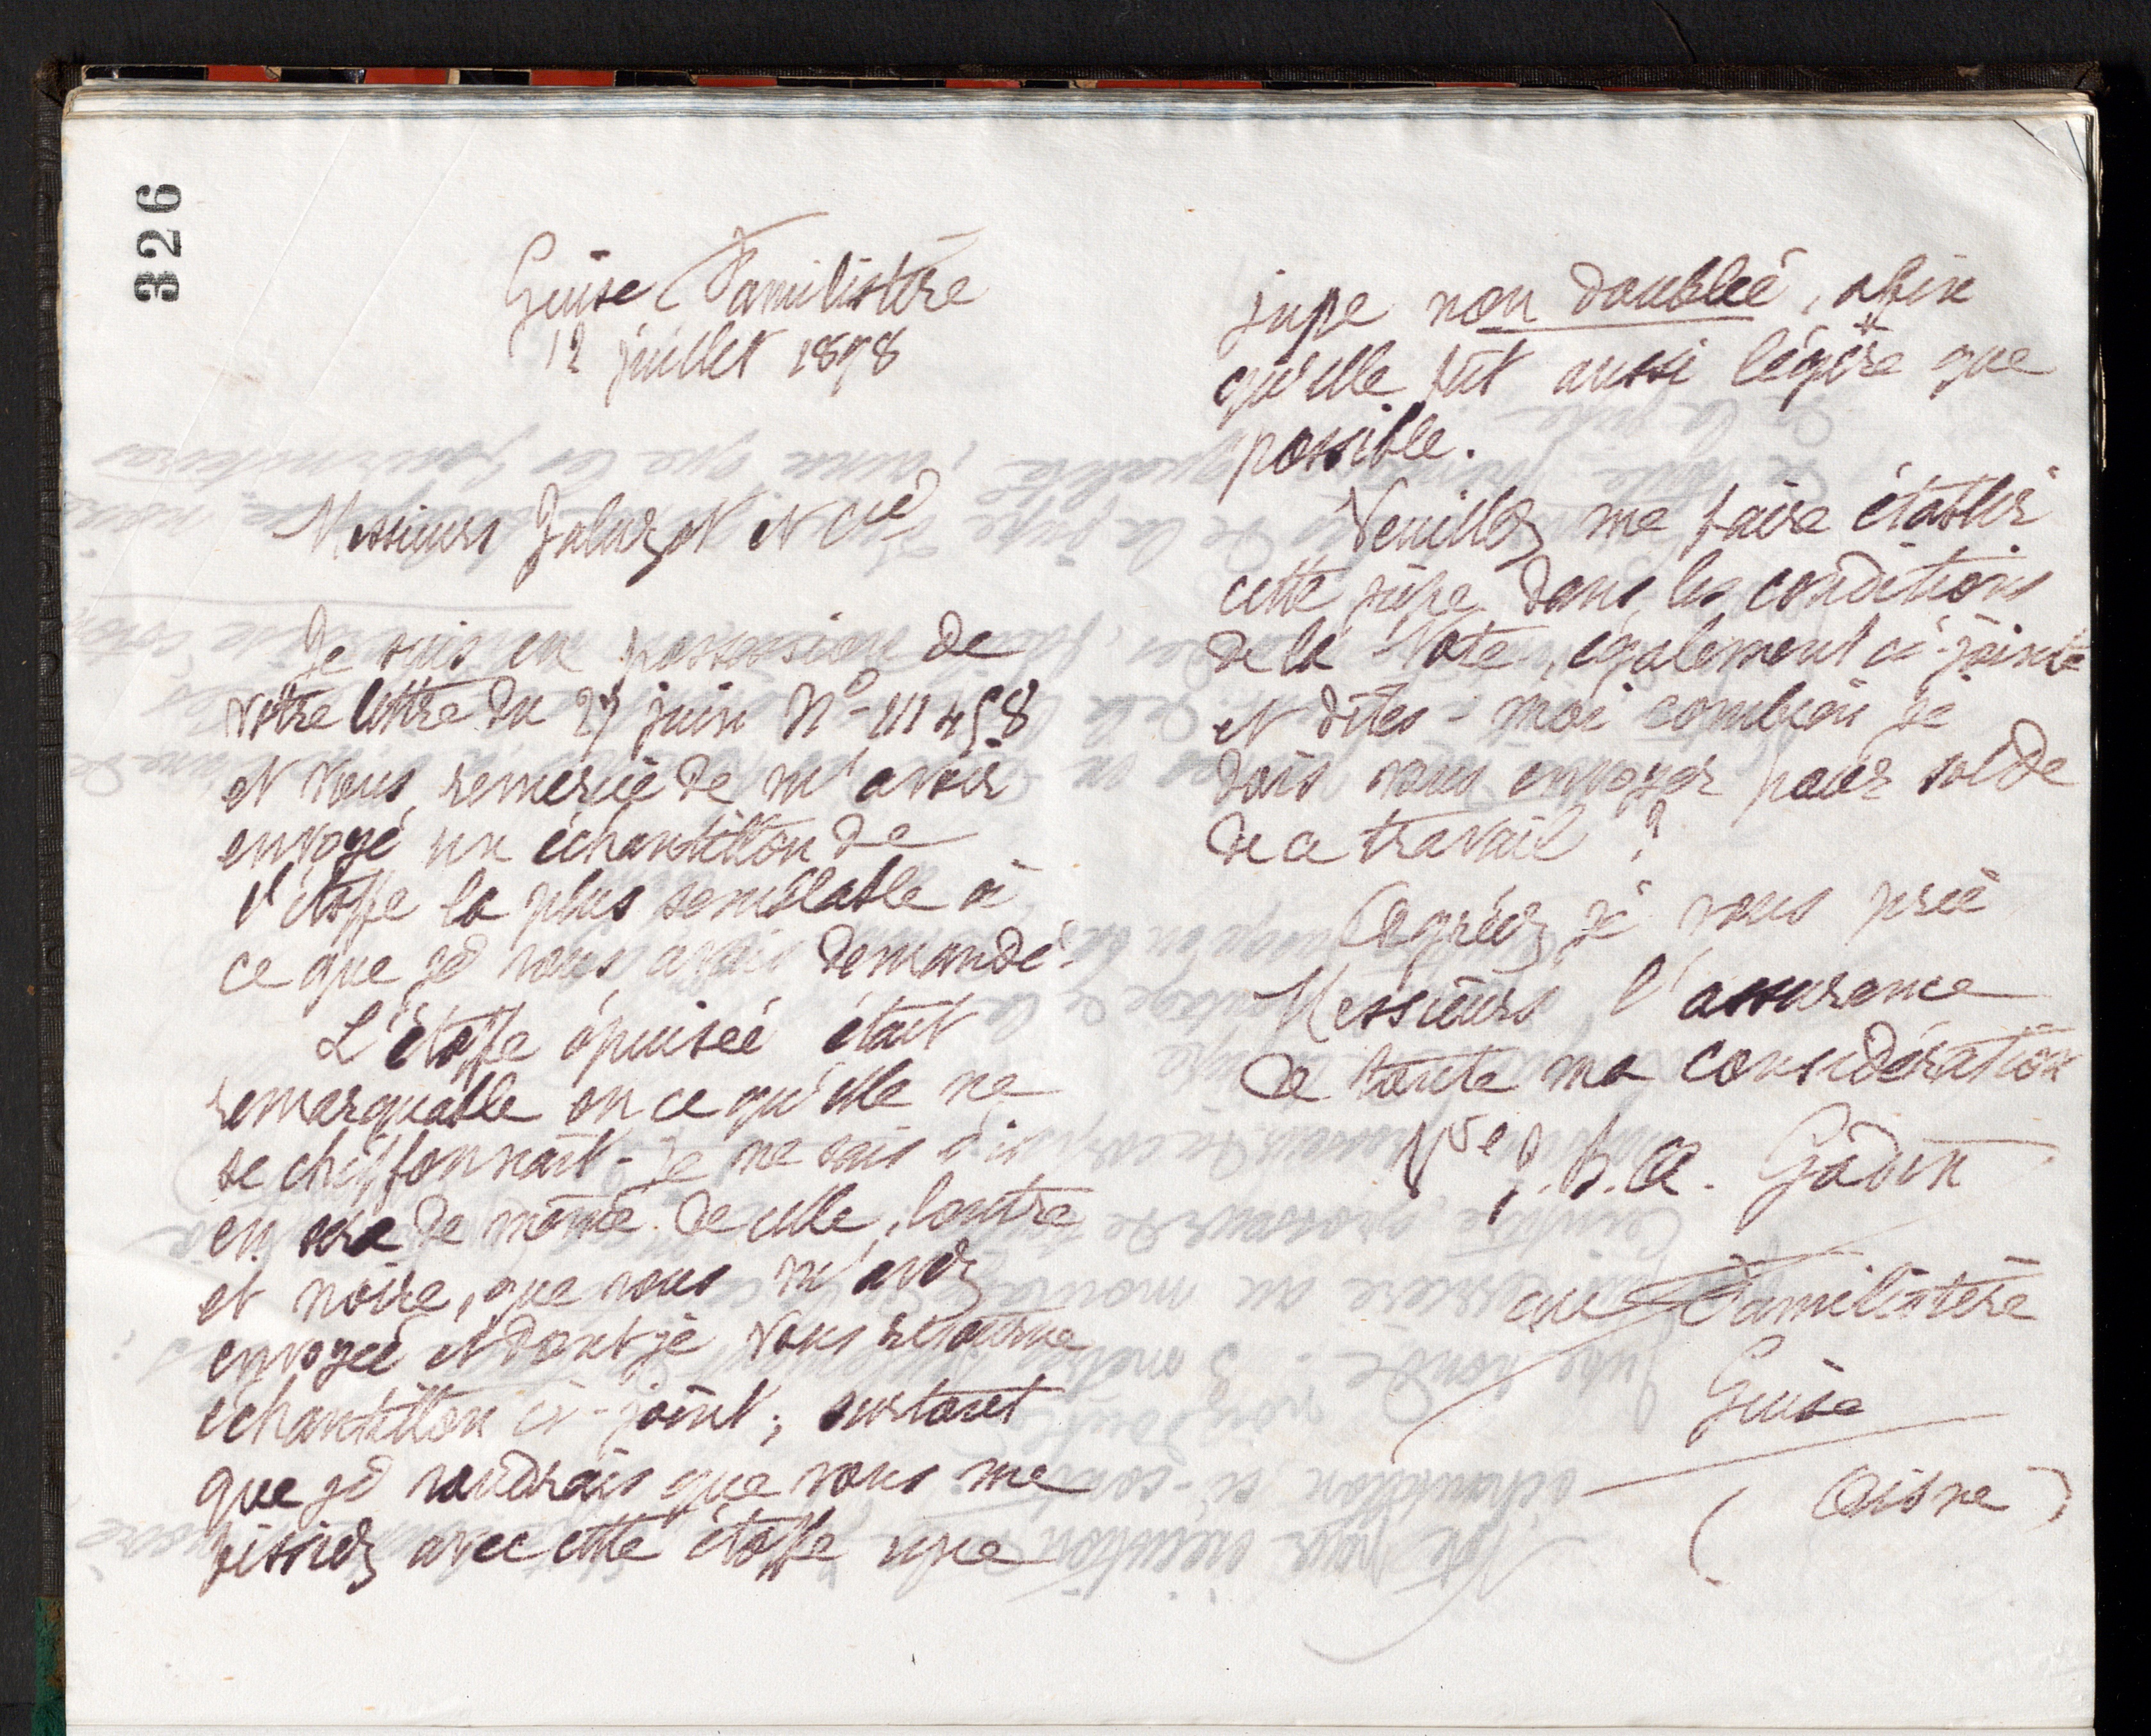 326
Guise Familistère
12 juillet 1898
Messieurs Jaluzot et Cie
Je suis en possession de
votre lettre du 27 juin No 411498
et vous remercie de m'avoir
envoyé un échantillon de
l'étoffe la plus semblable à
ce que je vous avais demandé.
L'étoffe épuisée était
remarquable en ce qu'elle ne
se chiffonnait - je ne sais s'il
en sera de même de celle, lustre
et noire, que vous m'avez
envoyée et dont je vous retourne
échantillon ci-joint ; surtout
que je voudrais que vous me
fissiez avec cette étoffe une
jupe non doublée, afin
qu'elle fût aussi légère que
possible.
Veuillez me faire établir
cette jupe dans les conditions
de la Note, également ci-jointe
et dites-moi combien je
dois vous envoyer pour solde
de ce travail ?
Agréez je vous prie
Messieurs l'assurance
de toute ma considération
Vve J. B. A. Godin
au Familistère
Guise
( Aisne )